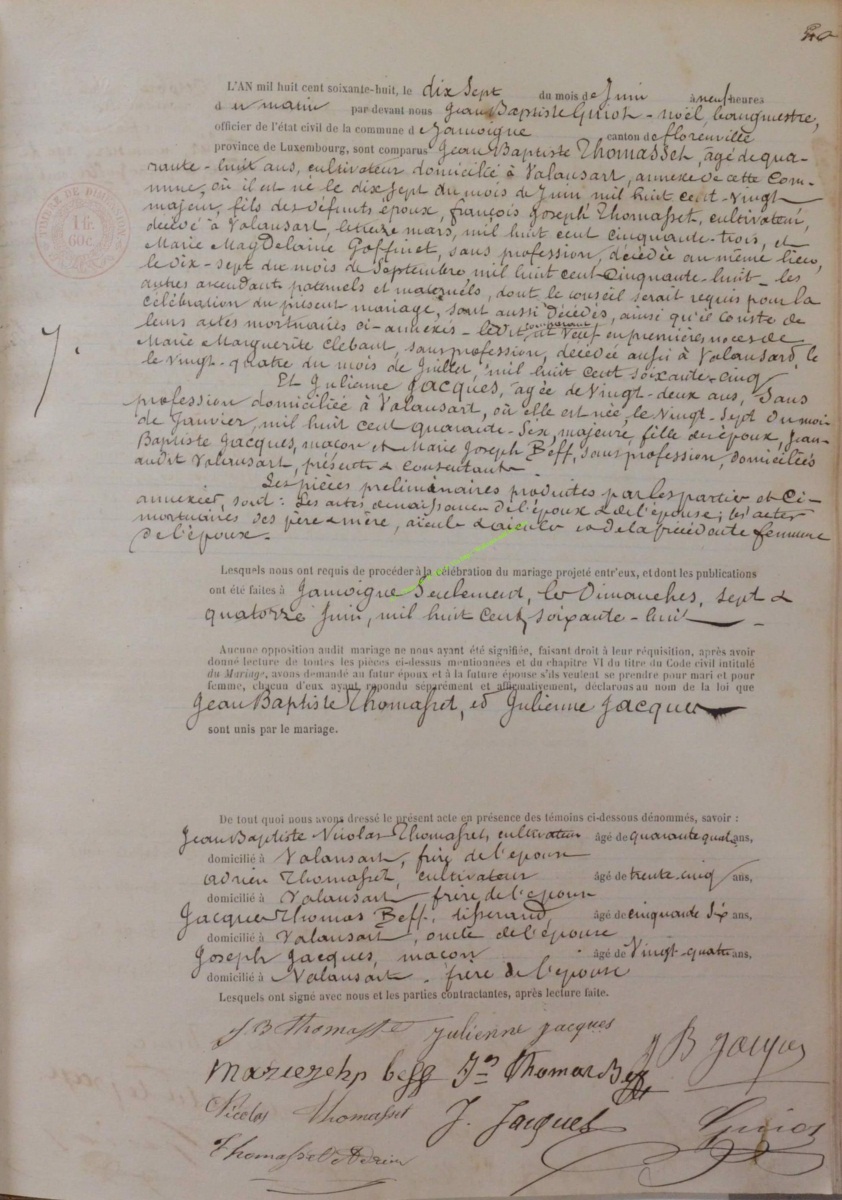 L'AN mil huit cent soixante-huit, le dix Sept du mois de Juin à neuf heures
d u matin par-devant nous Jean Baptiste Guiot-noël, bourgmestre,
officier de l'état civil de la commune d e Jamoigne canton de florenville
province de Luxembourg, sont comparus Jean Baptiste Thomasset, âgé de qua-
rante-huit ans, cultivateur domicilié à Valansart, annexe de cette Com-
mune, où il est né le dix Sept du mois de Juin mil huit cent-vingt
majeur, fils des défunts époux, françois Joseph Thomasset, cultivateur,
décédé à Valansart, le treize mars, mil huit cent cinquante-trois, et
Marie Magdelaine Goffinet, sans profession, décédée au même lieu,
le dix-sept du mois de Septembre mil huit cent Cinquante-huit - les
autres ascendants paternels et maternels, dont le conseil serait requis pour la
célébration du présent mariage, sont aussi décédés, ainsi qu'il conste de
leurs actes mortuaires ci-annexés - ledit comparant est Veuf en premières noces de
Marie Marguerite Clebant, sans profession, décédée aussi à Valansart, le
le Vingt-quatre du mois de Juillet, mil huit cent soixante-cinq
Et Julienne Jacques, âgée de Vingt-deux ans, Sans
profession domiciliée à Valansart, où elle est née, le Vingt-Sept du mois
de Janvier, mil huit cent quarante-Six, majeure, fille des époux, Jean-
Baptiste Jacques, maçon et Marie Joseph Beff, Sans profession, domiciliés
audit Valansart, présents & Consentants.
Les pièces préliminaires produites par les parties et Ci-
annexées, sont : Les actes de naissance de l'époux & de l'épouse; les actes
mortuaires des père & mère, aïeuls & aïeules et de la précédente femme
de l'époux.
7.
Lesquels nous ont requis de procéder à la célébration du mariage projeté entr'eux, et dont les publications
ont été faites à Jamoigne Seulement, les Dimanches, sept &
quatorze Juin, mil huit cent soixante-huit
Aucune opposition audit mariage ne nous ayant été signifiée, faisant droit à leur réquisition, après avoir
donné lecture de toutes les pièces ci-dessus mentionnées et du chapitre VI du titre du Code civil intitulé
du Mariage, avons demandé au futur époux et à la future épouse s'ils veulent se prendre pour mari et pour
femme, chacun d'eux ayant répondu séparément et affirmativement, déclarons au nom de la loi que
Jean Baptiste Thomasset, et Julienne Jacques
sont unis par le mariage.
De tout quoi nous avons dressé le présent acte en présence des témoins ci-dessous dénommés, savoir :
Jean Baptiste Nicolas Thomasset, cultivateur âgé de quarante quatre ans,
domicilié à Valansart, frère de l'époux
Adrien Thomasset, cultivateur âgé de trente-cinq ans,
domicilié à Valansart, frère de l'époux
Jacques Thomas Beff, tisserand, âgé de cinquante Six ans,
domicilié à Valansart, oncle de l'épouse
Joseph Jacques, maçon âgé de Vingt-quatre ans,
domicilié à Valansart - frère de l'épouse
Lesquels ont signé avec nous et les parties contractantes, après lecture faite.
J B Thomasset Julienne Jacques J B Jacques
beff Thomas Beff
Nicolas Thomasset J. Jacques Guiot
Thomasset Adrien